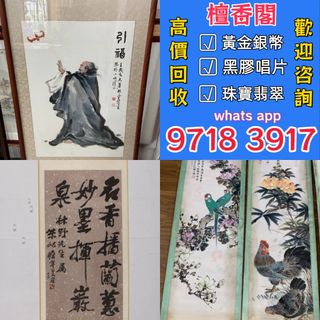 引福
檀香閣
高價回收
歡迎咨詢
黃金銀幣
黑膠唱片
珠寶翡翠
whats app
9718 3917
名香播蘭蕙
妙墨揮巖
泉
林野先生屬